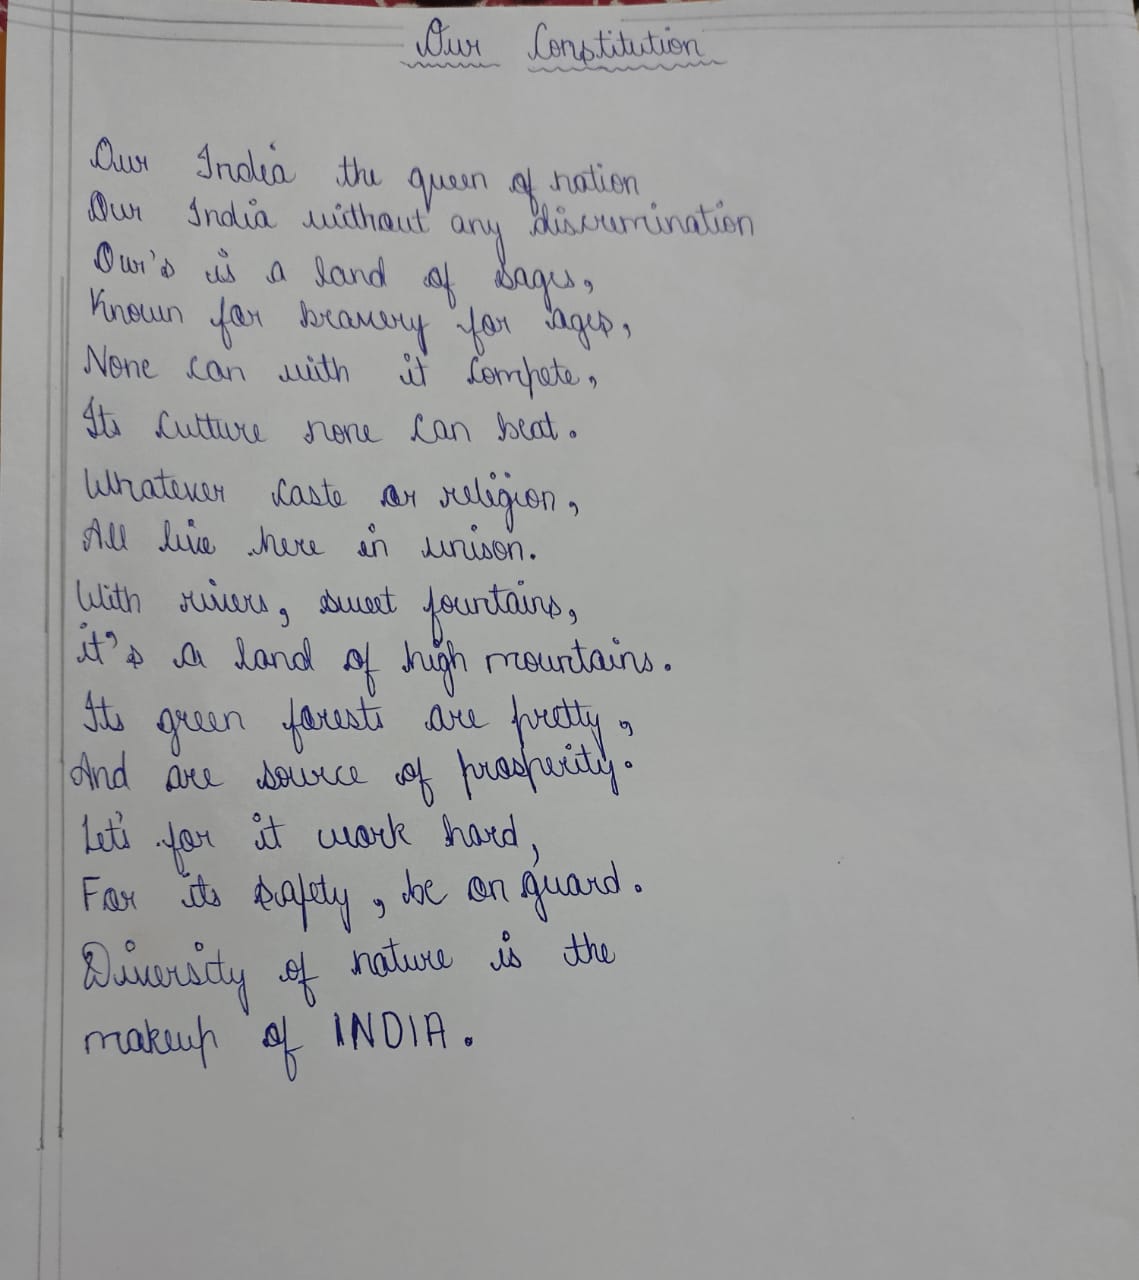 Our Constitution
Our India the queen of nation
Our India without any discrimination
Our's is a land of sages,
Known for bravery for ages,
None can with it compete,
Its culture none can beat.
Whatever caste or religion,
All live here in unison.
With rivers, sweet fountains,
it's a land of high mountains.
Its green forests are pretty,
And are source of prosperity.
Let's for it work hard,
For its safety, be on guard.
Diversity of nature is the
makeup of INDIA.